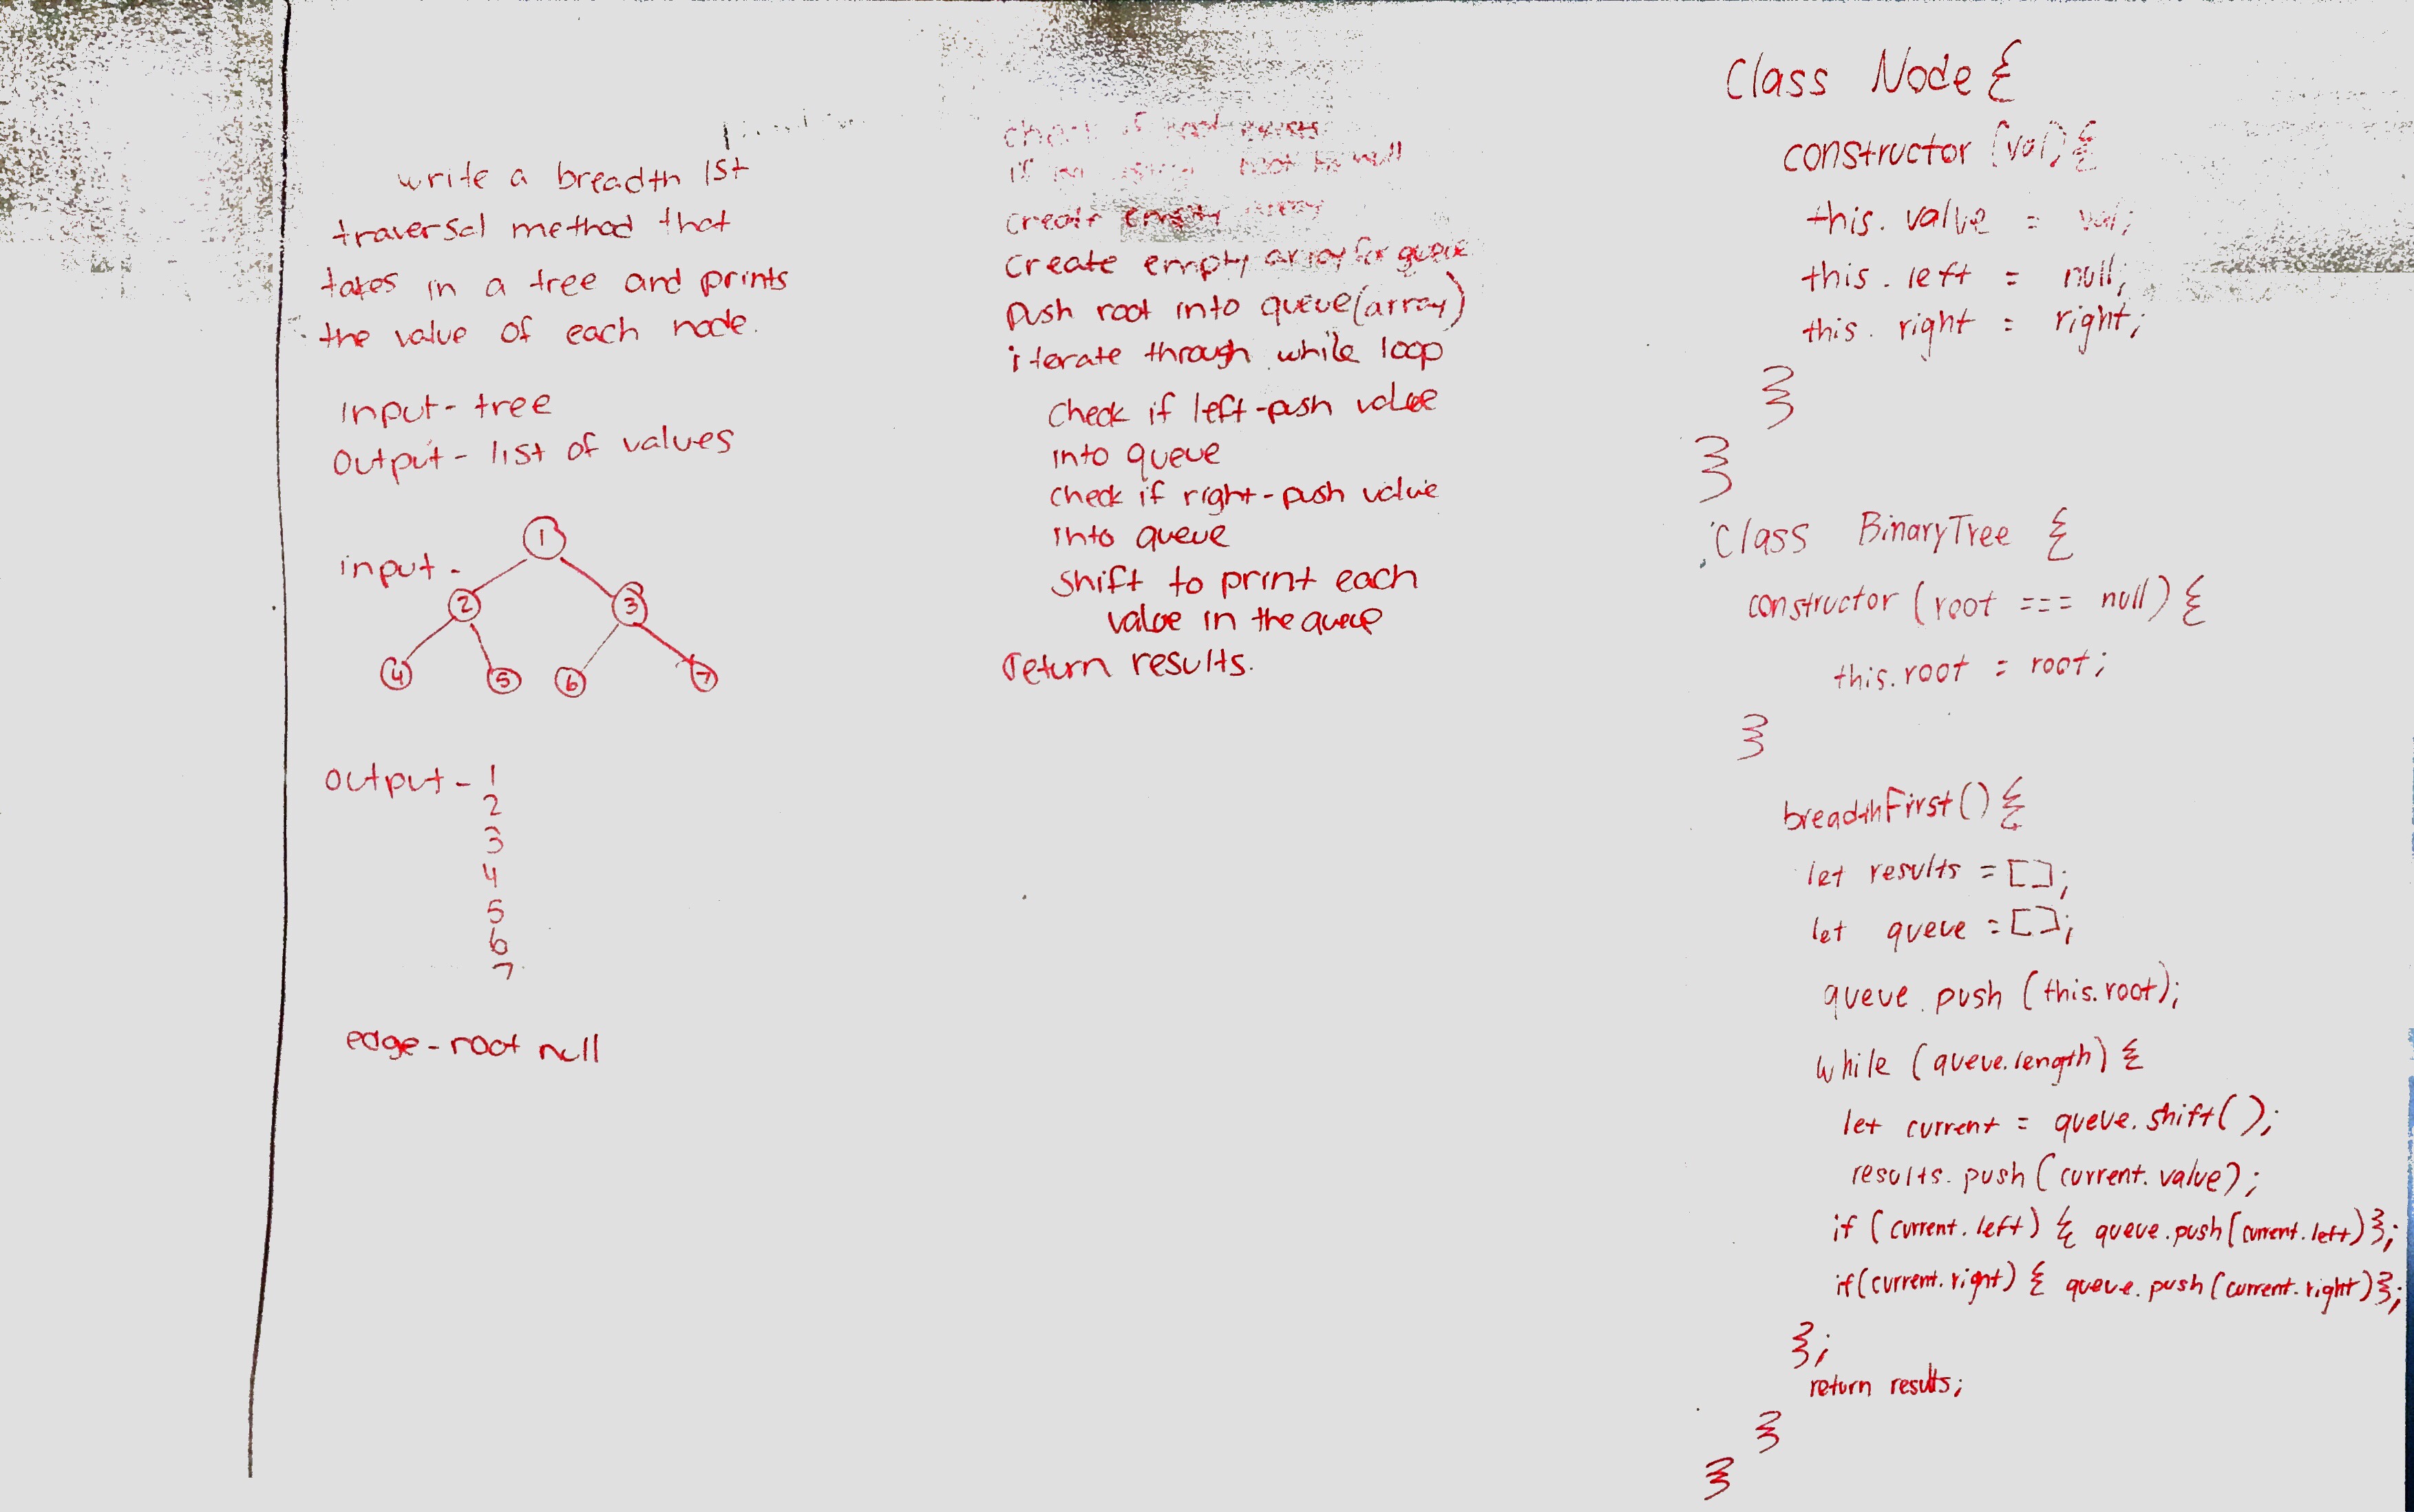 write a breadth 1st
traversal method that
takes in a tree and prints
the value of each node.
Input - tree
Output - list of values
input -
1
2 3
4 5 6 7
Output - 1
2
3
4
5
6
7
edge - root null
check if root exists
if root to null
create empty array
create empty array for queue
push root into queue(array)
iterate through while loop
check if left - push value
into queue
check if right - push value
into queue
shift to print each
value in the queue
return results.
Class Node {
constructor (val) {
this. value = val;
this. left = null;
this. right = right;
}
}
Class BinaryTree {
constructor (root === null) {
this.root = root;
}
breadthFirst() {
let results = [];
let queue = [];
queue.push (this.root);
while (queue.length) {
let current = queue.shift();
results.push (current.value);
if (current.left) { queue.push(current.left)};
if(current.right) { queue.push(current.right)};
};
return results;
}
}